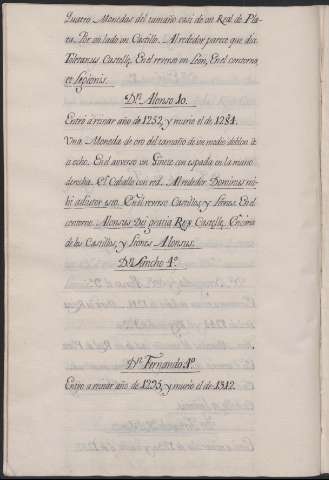 Quatro Monedas del tamaño casi de un Real de Pla-
ta. Por un lado un Castillo. Alrededor parece que dia
Toletanus Castelle. En el reverso un Leon, En el contorno
et Legionis.
Dn. Alonso 10.
Entró á reinar año de 1252, y murio el de 1284.
Una Moneda de oro del tamaño de un medio doblon de
a ocho. En el anverso un Ginete con espada en la mano
derecha. El Caballo con red. Alrededor Dominus mi-
hi adiutor esto. En el reverso Castillos, y Leones. En el
contorno. Alonsus Dei gratia Rex Castelle, Encima
de los Castillos, y Leones Alonsus.
Dn. Sancho 4º.
Dn. Fernando 4º.
Entro a reinar año de 1295, y murio el de 1312.